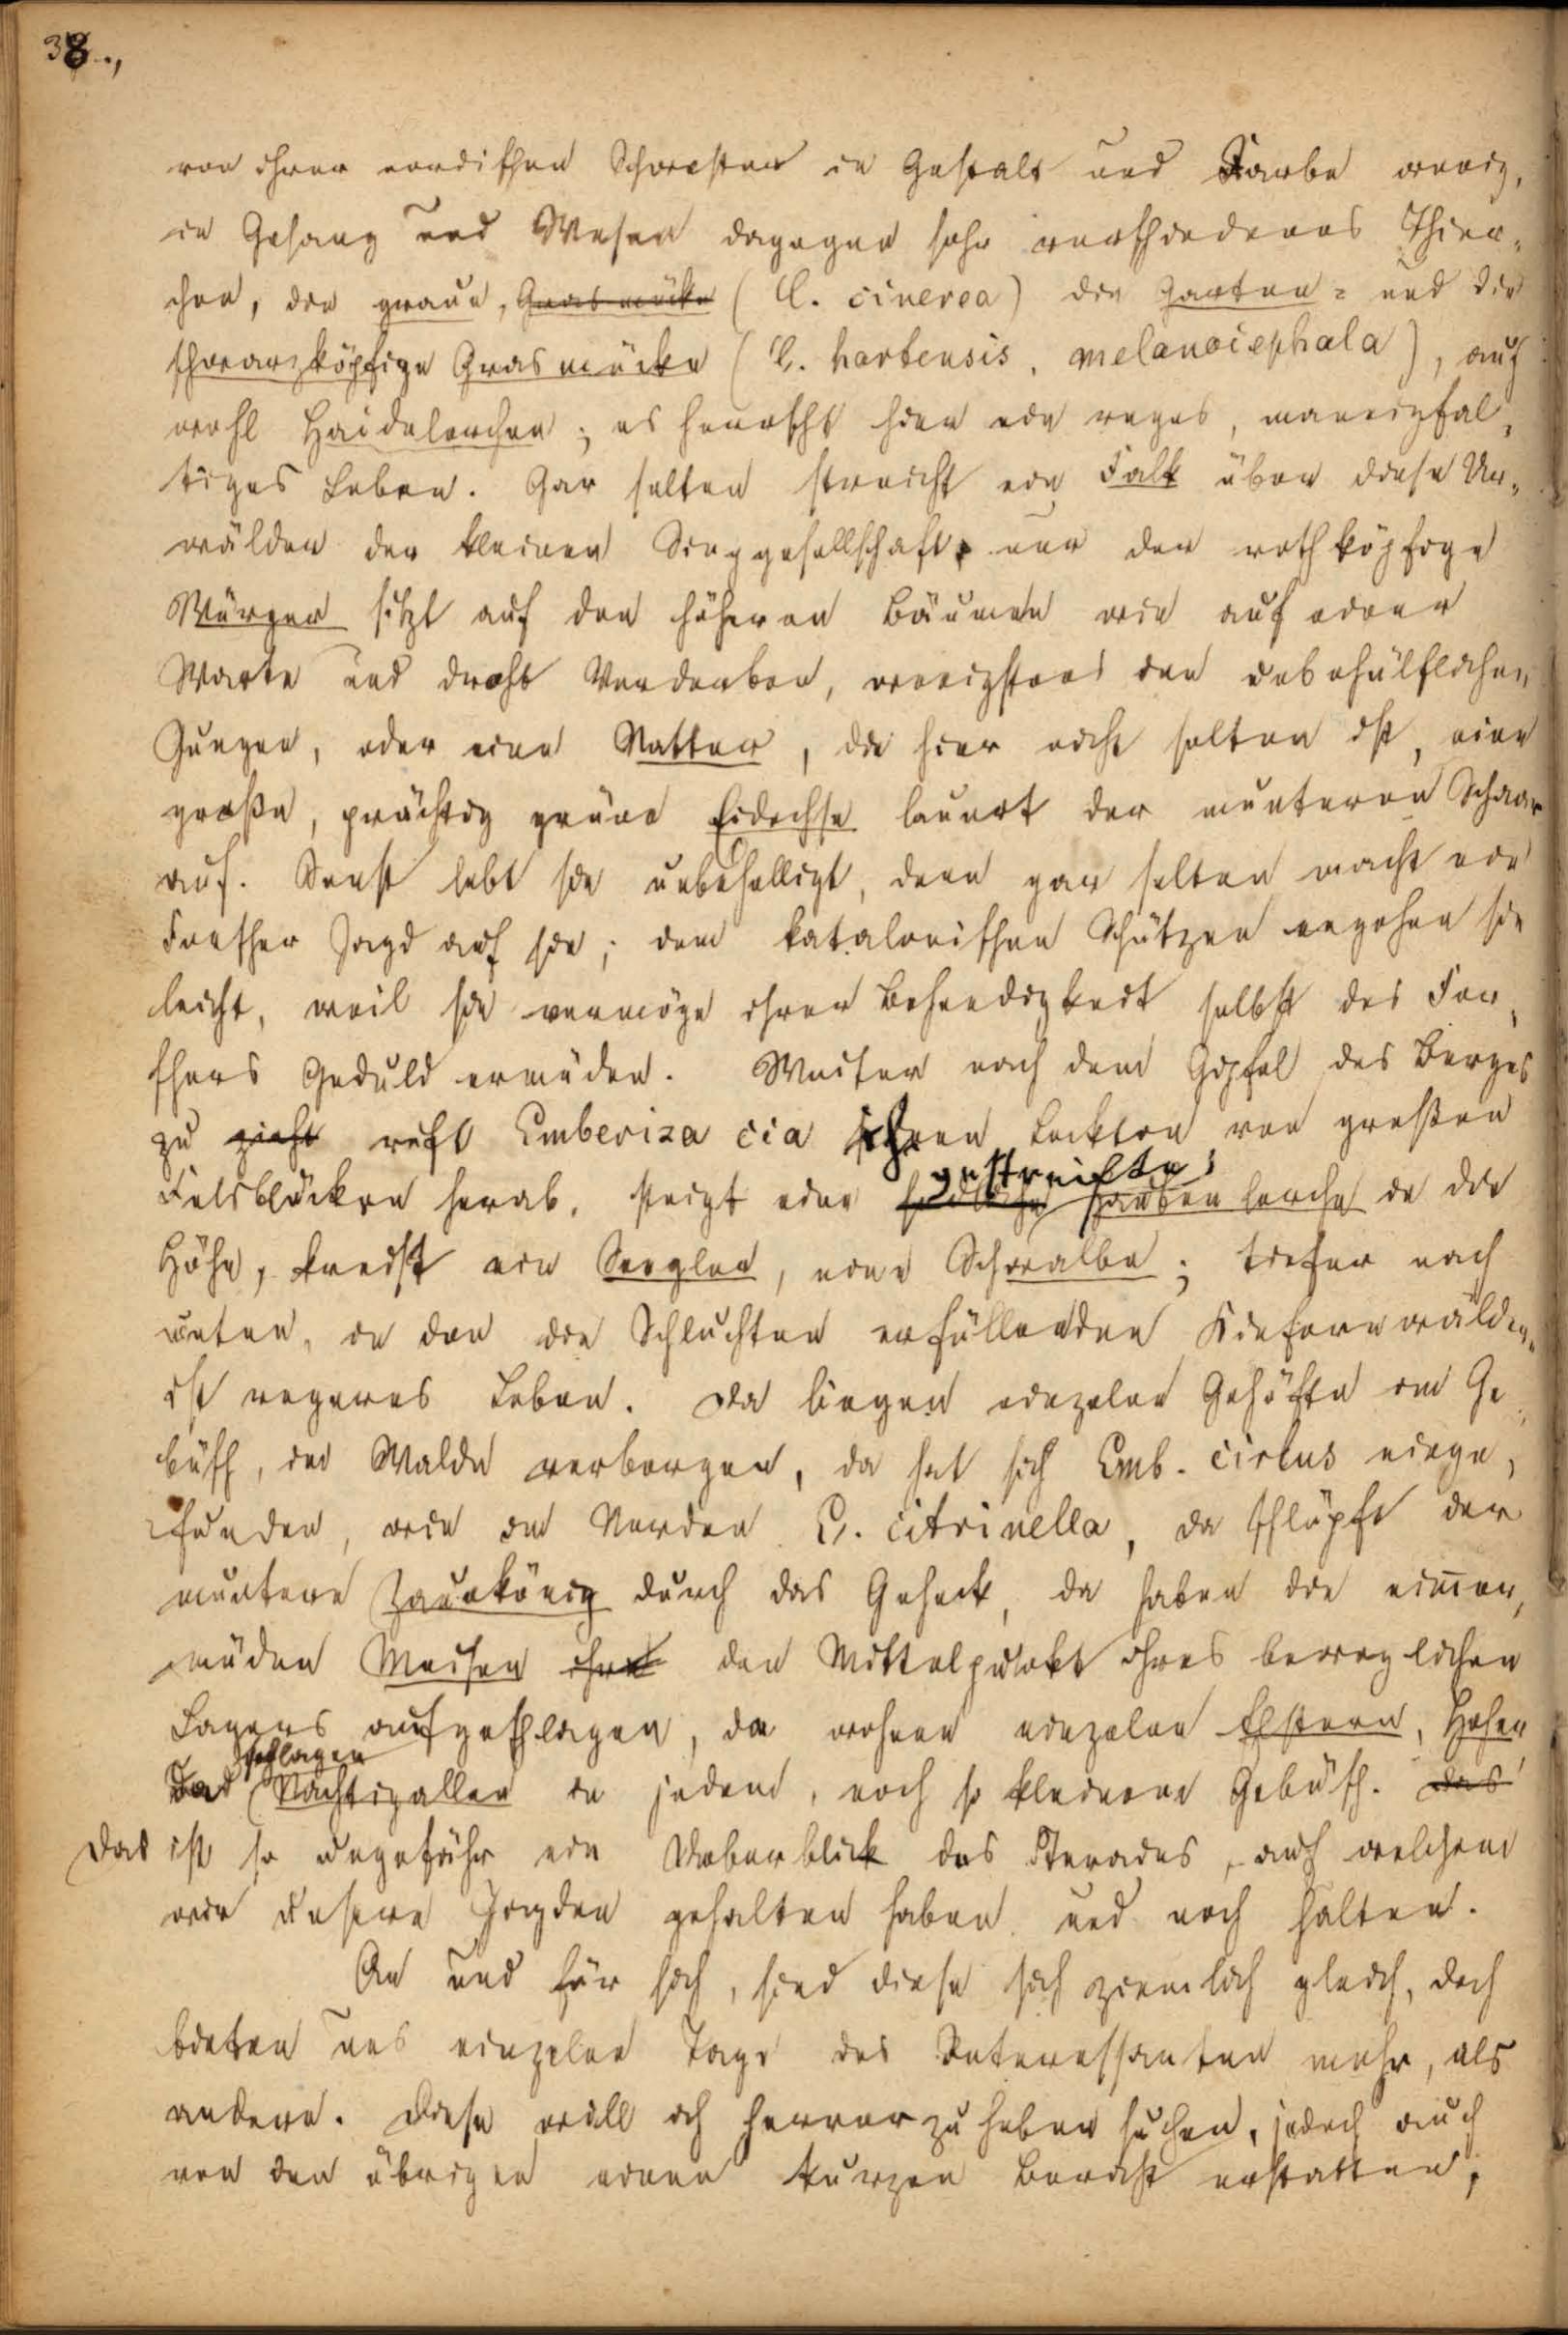 38.,
von ihrer nordischen Schwester in Gestalt und Farbe wenig,
in Gesang und Wesen dagegen sehr verschiedenes Thier-
chen, die graue, Grasmücke (C. cinerea) die Garten- und die
schwarzköpfige Grasmücke (C. hortensis, melanocephala), auch
wohl Haidelerchen; es herrscht hier ein reges, mannigfal-
tiges Leben. Gar selten streicht ein Falk über diese Ur-
wälder der kleinen Singgesellschaft, nur der rothköpfige
Würger sitzt auf den höheren Bäumen wie auf einer
Warte und droht Verderben, wenigstens den unbehülflichen
Jungen, oder eine Natter, die hier nicht selten ist, eine
große, prächtig grüne Eidechse lauert der munteren Schaar
auf. Sonst lebt sie unbehelligt, denn gar selten macht ein
Forscher Jagd auf sie; dem katalonischen Schützen entgehen sie
leicht, weil sie vermöge ihrer Behendigkeit selbst des For-
schers Geduld ermüden. Weiter nach dem Gipfel des Berges
zu zieht ruft Emberiza cia ihren Lockton von großen
gestreifte
Felsblöcken herab, steigt eine Haubenlerche in die
Höhe, kreist ein Seegler, eine Schwalbe; tiefer nach
unten, in den die Schluchten erfüllenden Kiefernwäldern
ist regeres Leben. Da liegen einzelne Gehöfte im Ge-
büsch, im Walde verborgen, da hat sich Emb. cirlus einge-
funden, wie im Norden E. citrinella, da schlüpft der
muntere Zaunkönig durch das Geheck, da haben die nimmer
müden Meisen ihre den Mittelpunkt ihres beweglichen
Lagers aufgeschlagen, da wohnen einzelne Elstern, Heher
schlagen
Da Nachtigallen in jedem, noch so kleinen Gebüsch. Das
Das ist so ungefähr ein Ueberblick des Terrains, auf welchem
wir unsere Jagden gehalten haben und noch halten.
An und für sich, sind diese sich ziemlich gleich, doch
bieten uns einzelne Tage des Interessanten mehr, als
andere. Diese will ich hervorzuheben suchen, jedoch auch
von den übrigen einen kurzen Bericht erstatten,